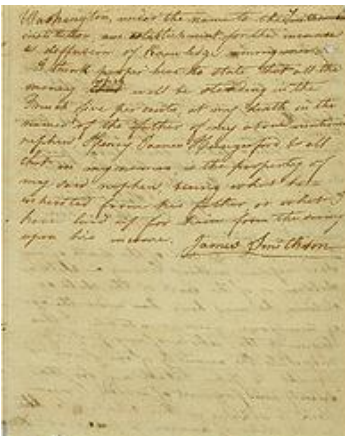 Washington, under the name of the Smithsonian
institution, an establishment for the increase
& diffusion of Knowledge among men.
I think proper here to state that all the
money which will be standing in the
French five per cents at my death in the
names of the father of my above mentioned
nephew Henry James Hungerford & all
that in my name is the property of
my said nephew being what he
inherited from his father or what I
have laid up for him from the savings
upon his income. James Smithson